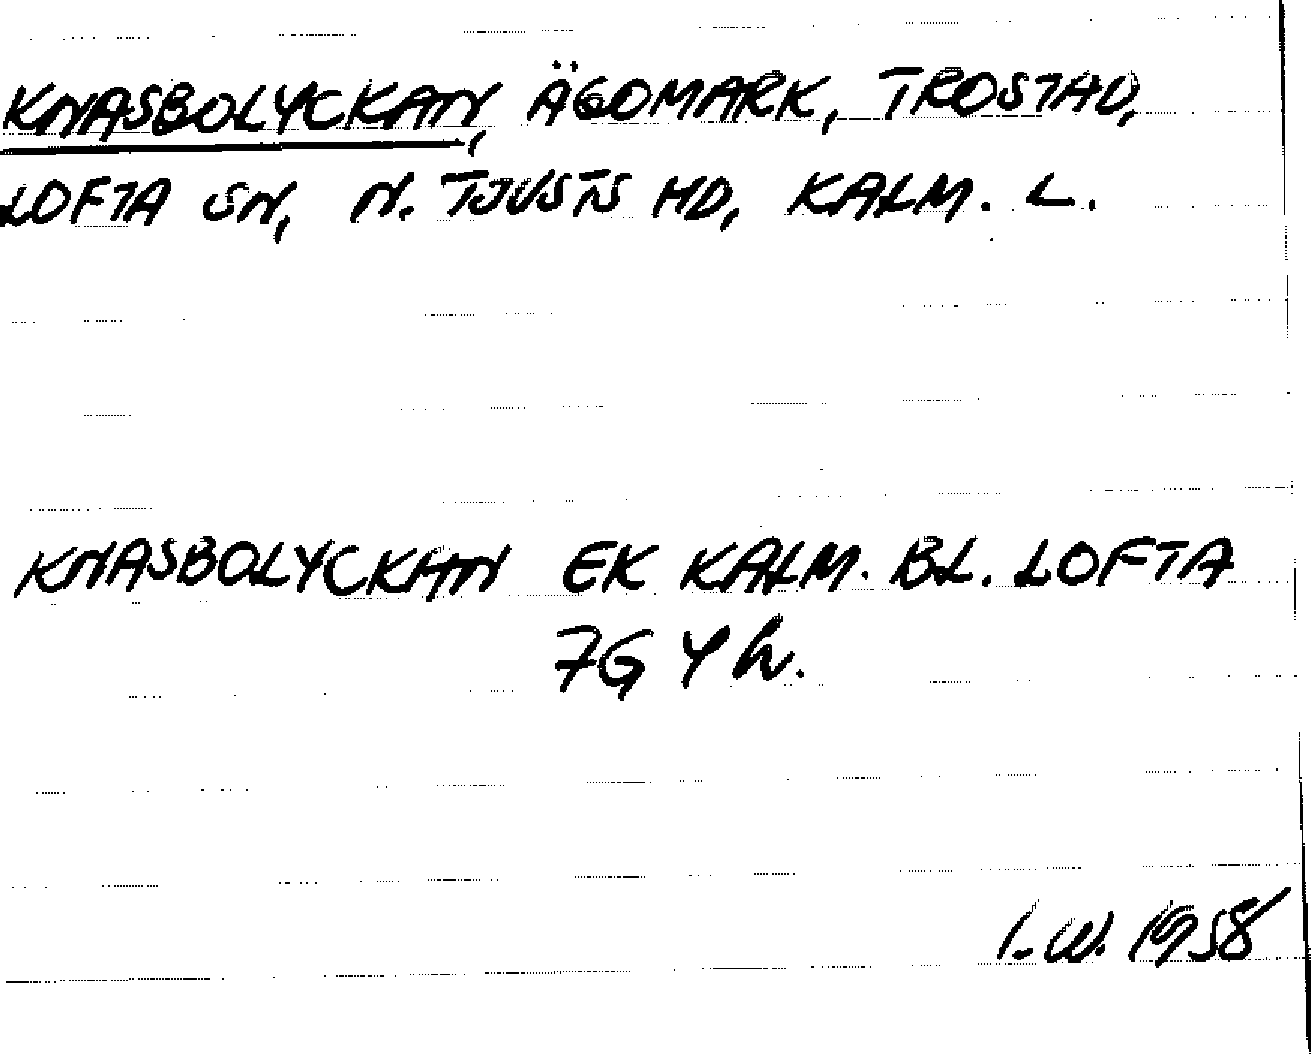 KNASBOLYCKAN, ÄGOMARK, TROSTAD,
LOFTA SN, N. TJUSTS HD, KALM. L.
KNASBOLYCKAN EK KALM. BL. LOFTA
7G 4 h.
I.W. 1958